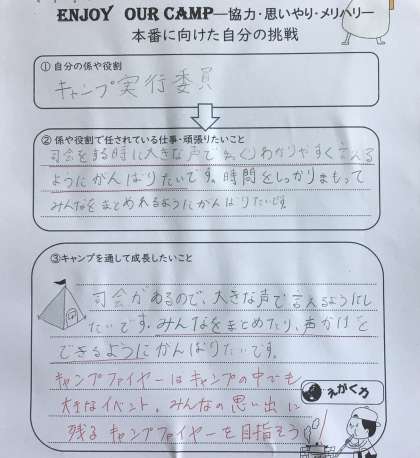 ENJOY OUR CAMP―協力・思いやり・メリハリ―
本番に向けた自分の挑戦
① 自分の係や役割
キャンプ実行委員
② 係や役割で任されている仕事・頑張りたいこと
司会をする時に大きな声でゆっくりわかりやすく言える
ようにがんばりたいです。時間をしっかりまもって
みんなをまとめれるようにがんばりたいです。
③キャンプを通して成長したいこと
司会があるので、大きな声で言えるようにし
たいです。みんなをまとめたり、声かけを
できるようにがんばりたいです。
キャンプファイヤーはキャンプの中でも
大きなイベント。みんなの思い出に
残るキャンプファイヤーを目指そう!
えがく力